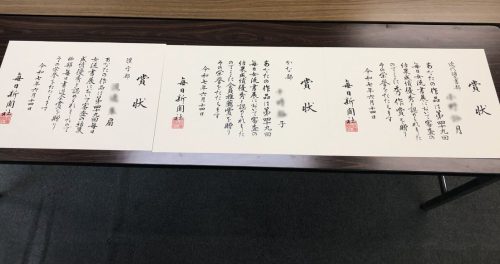 賞状
月
あなたの作品は第四九回
毎日女流書展において審査の
結果成績優秀と認められました
のでここに秀作賞を贈り
その栄誉をたたえます
令和七年六月十四日
毎日新聞社
賞状
かな部
子
あなたの作品は第四九回
毎日女流書展において審査の
結果成績優秀と認められました
のでここに会員推薦賞を贈り
その栄誉をたたえます
令和七年六月十四日
毎日新聞社
賞状
漢字部
あなたの作品は第四九回毎日
女流書展において審査の結果
成績優秀と認められ
賞を贈り
その栄誉をたたえます
令和七年六月十四日
毎日新聞社